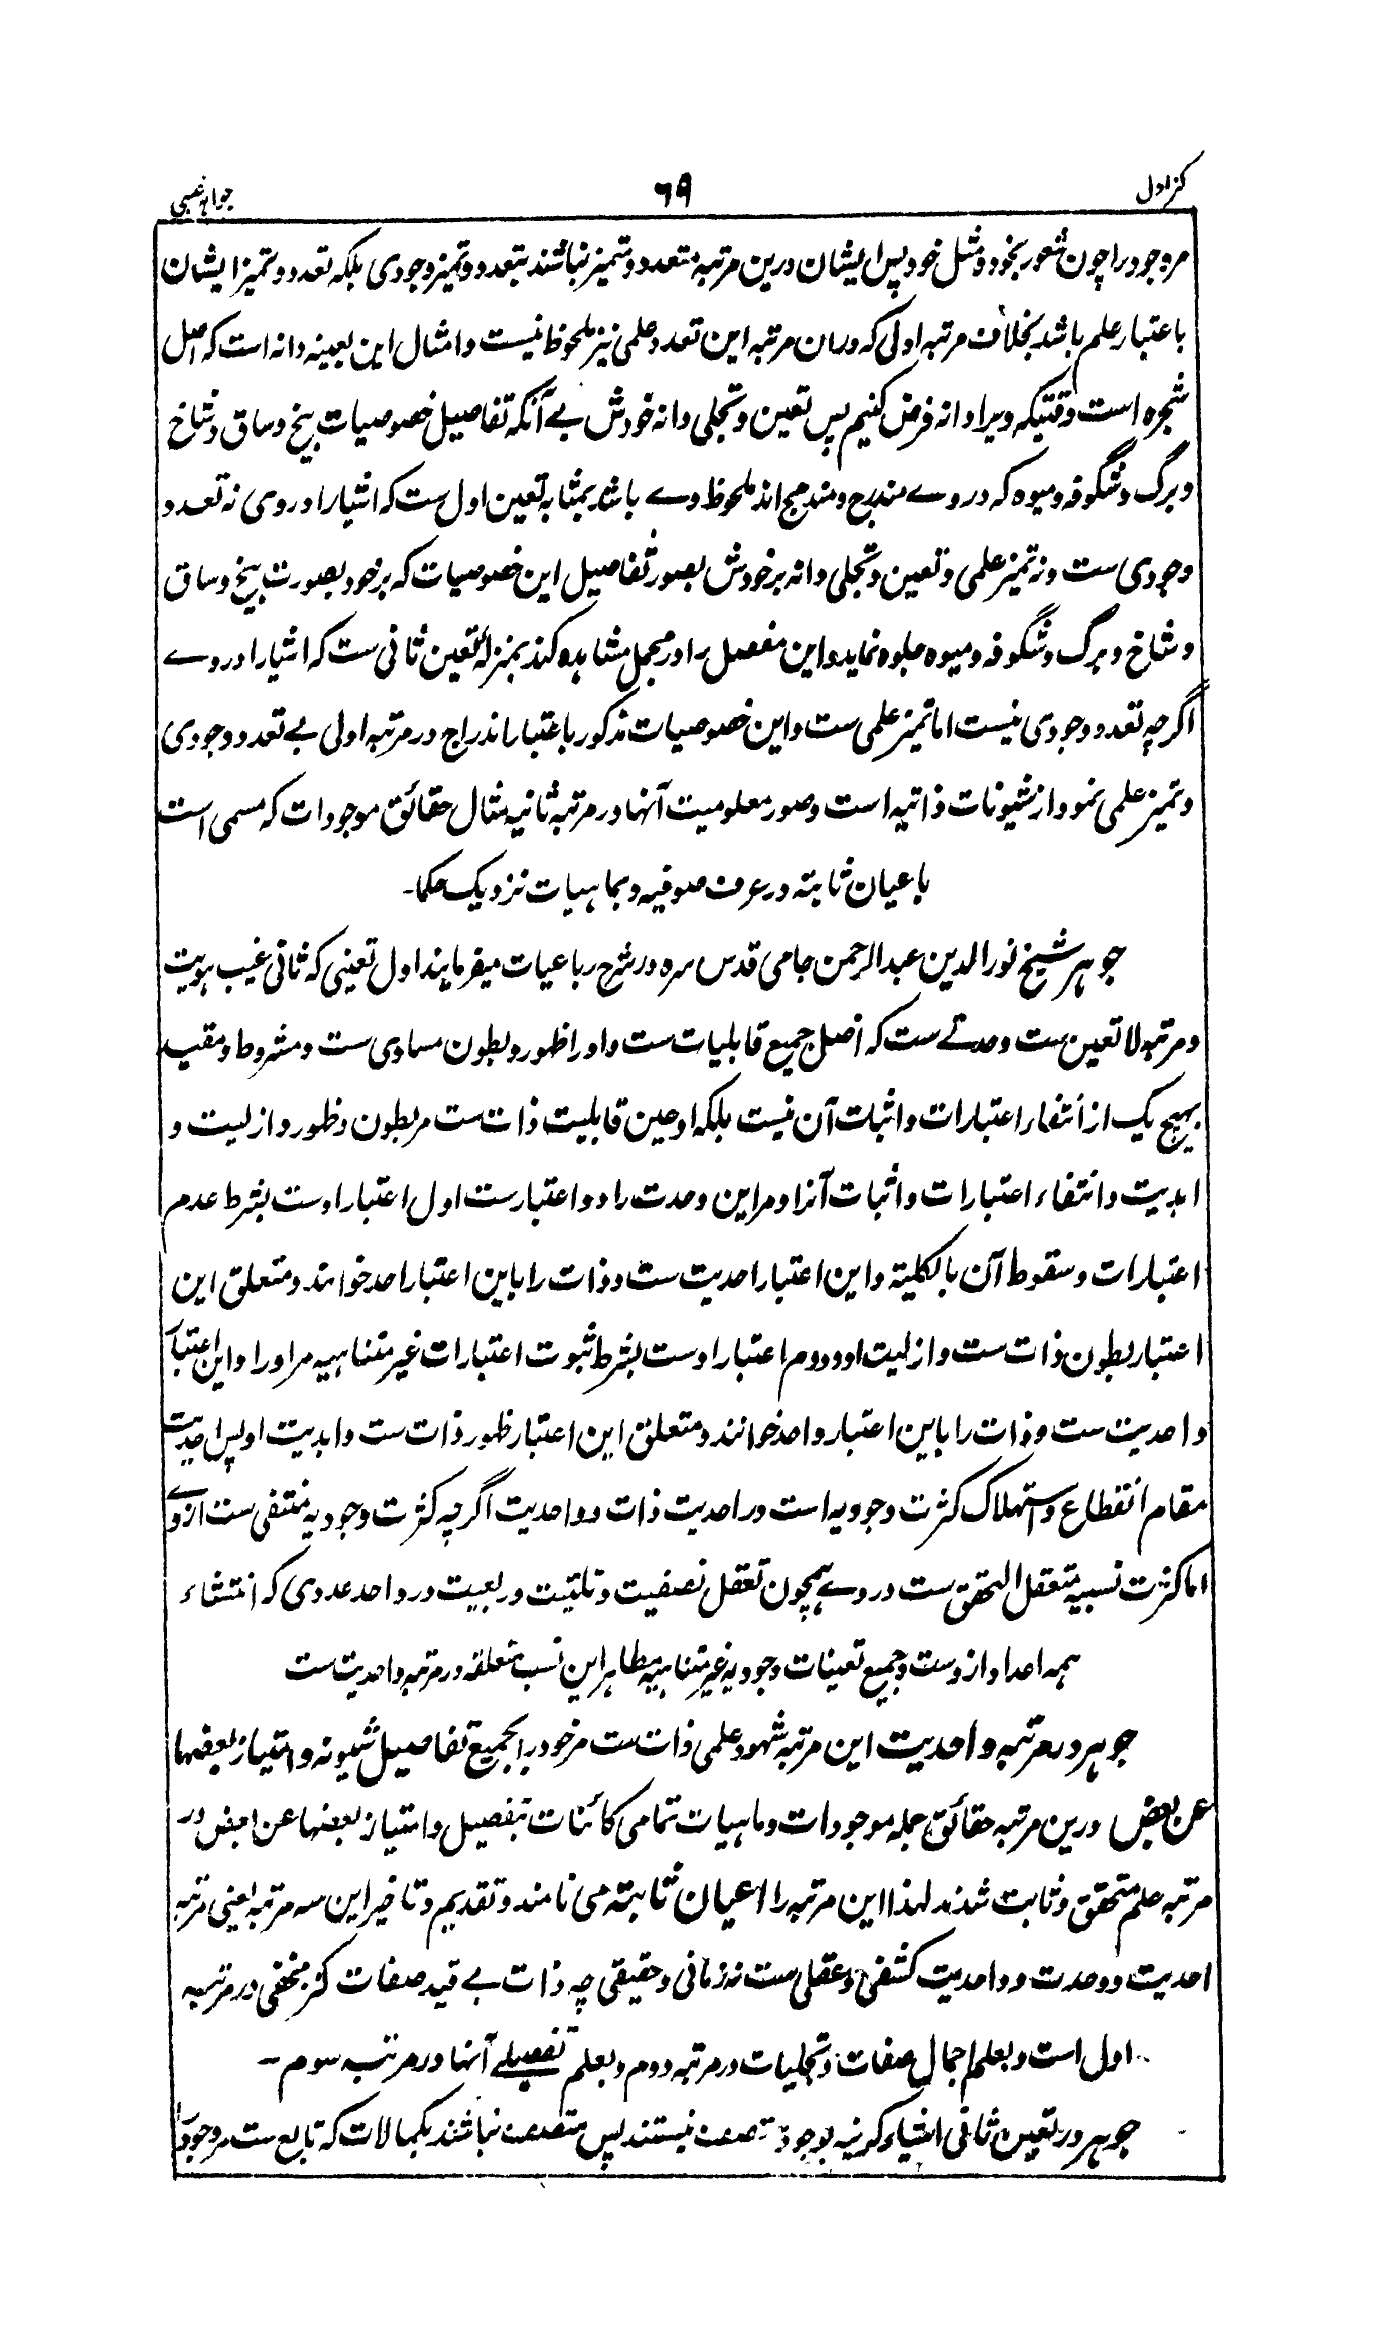 کنز اول
۶۹
جواہر غیبی
مر وجود را چون شعور بخود و مثل خود پس ایشان درین مرتبہ متعدد و متمیز نباشند بتعدد و تمیز وجودی بلکہ تعدد و تمیز ایشان
باعتبار علم باشد بخلاف مرتبہ اولی کہ دران مرتبہ این تعدد علمی نیز ملحوظ نیست و امثال این بعینہ دانہ است کہ اصل
شجرہ است وقتیکہ ویرا دانہ فرض کنیم پس تعین و تجلی دانہ خودش بے آنکہ تفاصیل خصوصیات بیخ و ساق و شاخ
و برگ و شگوفہ و میوہ کہ در وے مندرج و مندمج اند ملحوظ وے باشد بمثابہ تعین اول ست کہ اشیا را در وی نہ تعدد
وجودی ست و نہ تمیز علمی و تعین و تجلی دانہ بر خودش بصور تفاصیل این خصوصیات کہ بر خود بصورت بیخ و ساق
و شاخ و برگ و شگوفہ و میوہ جلوہ نماید و این مفصل را در مجمل مشاہدہ کند بمنزلہ تعین ثانی ست کہ اشیا را در وے
اگرچہ تعدد وجودی نیست اما تمیز علمی ست و این خصوصیات مذکور باعتبار اندراج در مرتبہ اولی بے تعدد وجودی
و تمیز علمی نمودار شیونات ذاتیہ است و صور معلومیت آنہا در مرتبہ ثانیہ مثال حقائق موجودات کہ مسمی است
باعیان ثابتہ در عرف صوفیہ و بماہیات نزدیک حکما۔
جوہر شیخ نور الدین عبد الرحمن جامی قدس سرہ در شرح رباعیات میفرمایند اول تعینی کہ ثانی غیب ہویت
و مرتبہ لا تعین ست وحدتے ست کہ اصل جمیع قابلیات ست و اورا ظہور و بطون مساوی ست و مشروط و مقید
بہیچ یک از انتفاء اعتبارات و اثبات آن نیست بلکہ او عین قابلیت ذات ست مر بطون و ظہور و ازلیت و
ابدیت و انتفاء اعتبارات و اثبات آنرا و مر این وحدت را دو اعتبارست اول اعتبار اوست بشرط عدم
اعتبارات و سقوط آن بالکلیۃ و این اعتبار احدیت ست و ذات را باین اعتبار احد خوانند و متعلق این
اعتبار بطون ذات ست و ازلیت او و دوم اعتبار اوست بشرط ثبوت اعتبارات غیر متناہیہ مر اورا و این اعتبار
واحدیت ست و ذات را باین اعتبار واحد خوانند و متعلق این اعتبار ظہور ذات ست و ابدیت او پس احدیت
مقام انقطاع و استہلاک کثرت وجودیہ است در احدیت ذات و واحدیت اگرچہ کثرت وجودیہ منتفی ست از وے
اما کثرت نسبیہ متعقل التحقق ست در وے ہمچون تعقل نصفیت و ثلثیت و ربعیت در واحد عددی کہ انتشاء
ہمہ اعداد از وست و جمیع تعینات وجودیہ غیر متناہیہ مظاہر این نسب متعلقہ در مرتبہ واحدیت ست
جوہر در مرتبہ واحدیت این مرتبہ شہود علمی ذات ست مر خود را بجمیع تفاصیل شیونہ و امتیاز بعضہا
عن بعض درین مرتبہ حقائق جملہ موجودات و ماہیات تمامی کائنات بتفصیل و امتیاز بعضہا عن بعض در
مرتبہ علم متحقق و ثابت شدند لہذا این مرتبہ را اعیان ثابتہ می نامند و تقدیم و تاخیر این سہ مرتبہ یعنی مرتبہ
احدیت و وحدت و واحدیت کشفی و عقلی ست نہ زمانی و حقیقی چہ ذات بے قید صفات کنز مخفی در مرتبہ
اول است و بعلم اجمال صفات و تجلیات در مرتبہ دوم و بعلم تفصیلے آنہا در مرتبہ سوم ۔
جوہر در تعین ثانی اشیاء کونیہ بوجود متصف نیستند پس متصف نباشند بکمالات کہ تابع ست مر وجود را